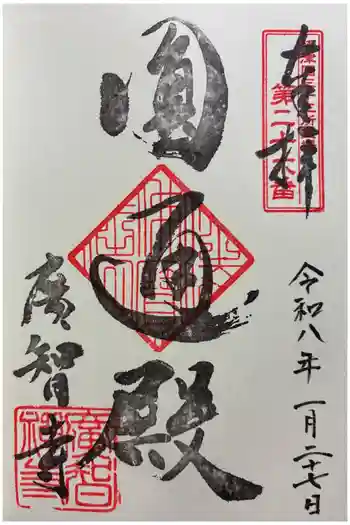 奉拝
第二十六番
令和八年一月二十七日
圓通殿
廣智寺
廣智禅寺